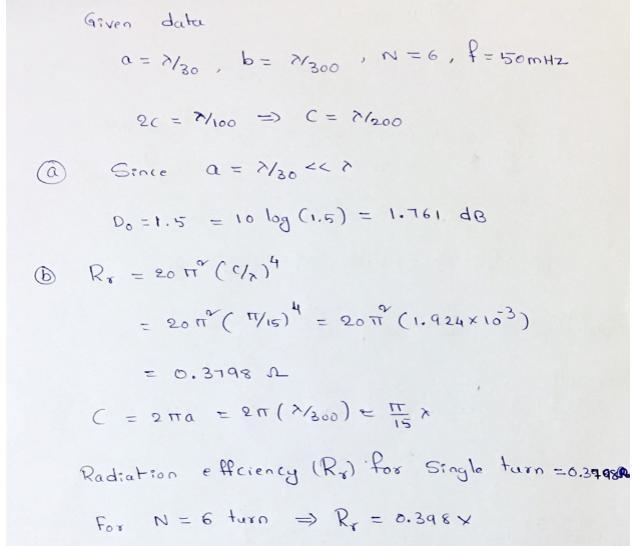 Given data
a = λ/30 , b = λ/300 , N = 6 , f = 50 mHz
2C = λ/100 ⇒ C = λ/200
(a) Since a = λ/30 << λ
D₀ = 1.5 = 10 log (1.5) = 1.761 dB
(b) Rᵣ = 20 π² (C/λ)⁴
= 20 π² (π/15)⁴ = 20 π² (1.924 × 10⁻³)
= 0.3798 Ω
C = 2πa = 2π (λ/300) = π/15 λ
Radiation effciency (Rᵣ) for Single turn = 0.3798Ω
For N = 6 turn ⇒ Rᵣ = 0.398 ×